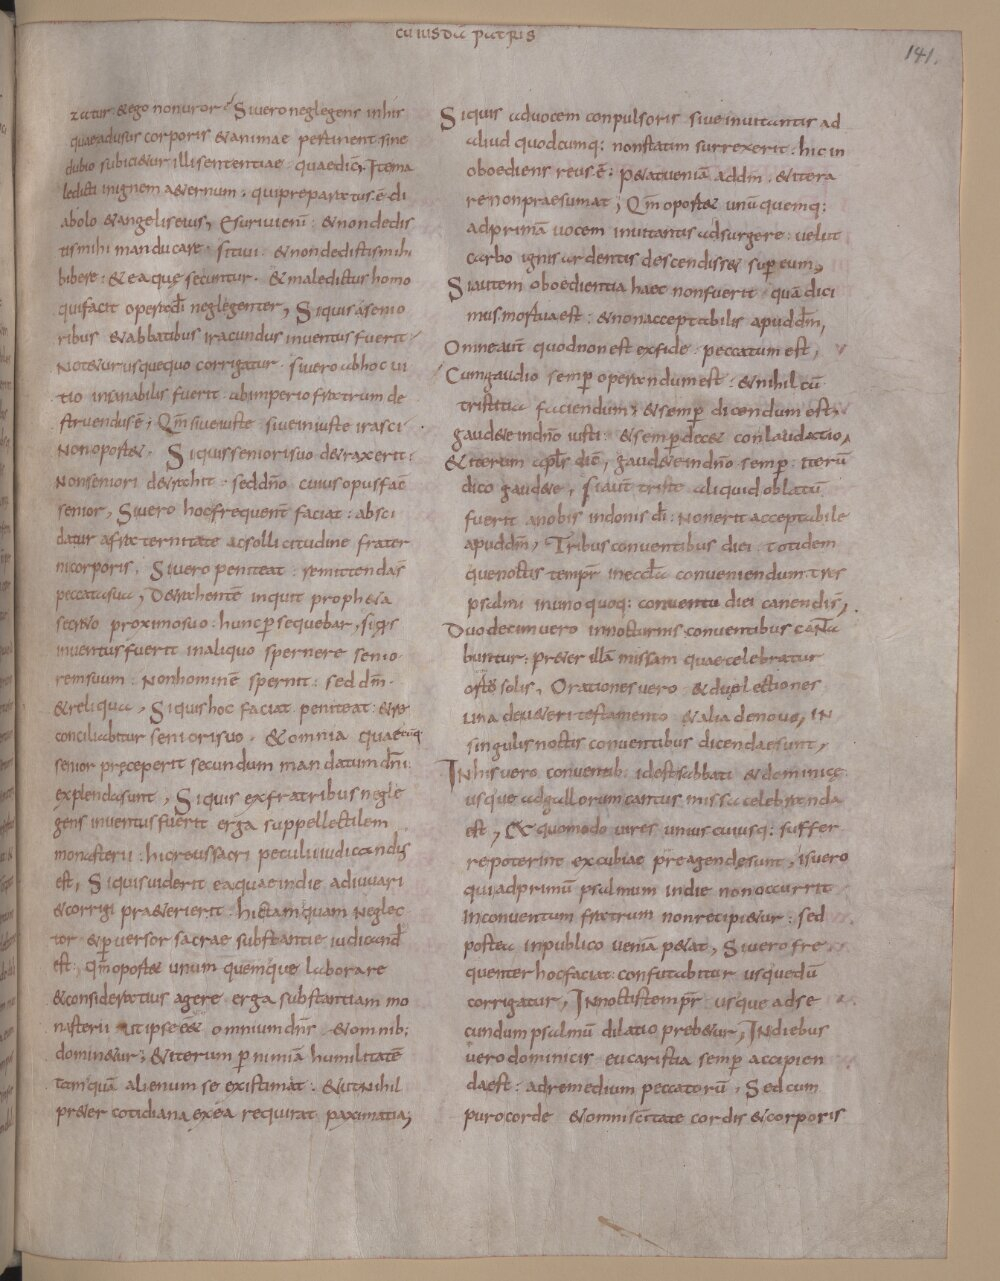 cuiusdā patris
141.
zatur & ego non uror? Si vero neglegens in his
quae ad usus corporis & animae pertinent sine
dubio subici&ur illi sententiae quae dicit, Ite ma
ledicti in ignem a&ernum, qui preparatus ē di
abolo & angelis eius, Esurivi enī & non dedis
tis mihi manducare. sitivi & non dedistis mihi
bibere: & ea quę secuntur. & maledictus homo
qui facit opera dī neglegenter, Si quis a senio
ribus & abbatibus iracundus inventus fuerit
Not&ur usquequo corrigatur. si vero ab hoc vi
tio insanabilis fuerit ab imperio fratrum de
struendus ē; Qm̄ sive iuste sive iniuste irasci
Non oport&. Si quis seniori suo d&raxerit:
Non seniori d&rahit. sed dn̄o cuius opus fac
senior, Si vero hoc frequent faciat: absci
datur a fraternitate ac sollicitudine frater
ni corporis. Si vero peniteat: remittenda s̄
peccata sua, D&rahentē inquit proph&a
secr&o proximo suo: hunc p̄sequebar, si qis
inventus fuerit in aliquo spernere senio
rem suum: Non hominē spernit: sed dm̄.
& reliqua, Si quis hoc faciat peniteat: & re
conciliabitur seniori suo. & omnia quaecūq
senior pręceperit secundum mandatum dn̄i
explenda sunt, Si quis ex fratribus negle
gens inventus fuerit erga suppellectilem
monasterii: hic reus sacri peculii iudicandus
est, Si quis viderit ea quae indie adiuvari
& corrigi pra&erierit: hic tamquam Neglec
tor & p̄versor sacrae substantie iudicand
est: qm̄ oport& unum quemque laborare
& consideratius agere erga substantiam mo
nasterii ut ipse ē& omnium dn̄s & omnib;
domin&ur; & iterum p̄ nimiā humilitatē
tamquā alienum se existimat. & ut Nihil
pr&er cotidiana ex ea requirat paximatia;
Si quis ad vocem conpulsoris sive invitantis ad
aliud quodcumq: non statim surrexerit: hic in
oboediens reus ē: P&at veniā ad dm̄. & itera
re non praesumat; Qm̄ oport& unū quemq:
ad primā vocem invitantis adsurgere: velut
carbo ignis ardentis descendiss& sup̄ eum,
Si autem oboedientia haec non fuerit quā dici
mus mortua est: & non acceptabilis apud dm̄,
Omne aut̄ quod non est ex fide peccatum est,
Cum gaudio semp̄ operandum est: & nihil cū
tristitia faciendum; & semp̄ dicendum est,
gaud&e in dn̄o iusti: & semp̄ dec& conlaudatio,
& iterum apl̄s dic̄, gaud&e in dn̄o semp̄: iterū
dico gaud&e, Si aut̄ triste aliquid oblatū
fuerit a nobis in donis dī: Non erit acceptabile
apud dm̄, Tribus conventibus diei totidem
que noctis tempr̄ in eccl̄a conveniendum. tres
psalmi in uno quoq: conventu diei canendi s̄,
Duodecim vero in nocturnis conventibus canta
buntur: pr&er illā missam quae celebratur
ortō solis, Orationes vero & duę lectiones
una de v&eri testamento & alia de novo, IN
singulis noctis conventibus dicendae sunt,
IN his vero conventib: id est sabbati & dominice
usque ad gallorum cantus missa celebranda
est, & quomodo vires unius cuiusq: suffer
re poterint excubiae pre agende sunt, is vero
qui ad primū psalmum indie non occurrit
in conventum fratrum non recipi&ur: sed
postea in publico veniā p&at, Si vero fre
quenter hoc faciat: confutabitur usquedū
corrigatur, IN noctis tempr̄ usque ad se
cundum psalmū dilatio preb&ur, IN diebus
vero dominicis eucaristia semp̄ accipien
da est: ad remedium peccatorū, Sed cum
puro corde & omni sc̄itate cordis & corporis